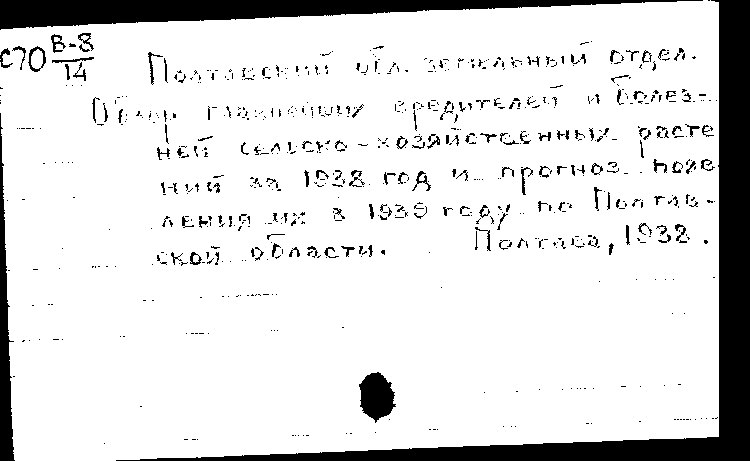 С70 В-8/14
Полтавский обл. земельный отдел.
Обзор главнейших вредителей и болез-
ней сельско-хозяйственных расте
ний за 1938 год и прогноз появ
ления их в 1939 году по Полтав-
ской области. Полтава, 1938.